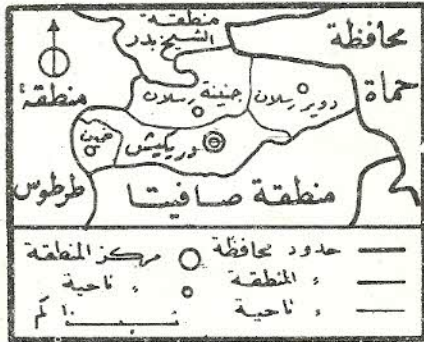 منطقة
الشيخ بدر
محافظة
حماة
منطقة
طرطوس
جنينة رسلان
دوير رسلان
دريكيش
حمين
منطقة صافيتا
حدود محافظة
مركز المنطقة
〃 المنطقة
〃 ناحية
〃 ناحية
كم